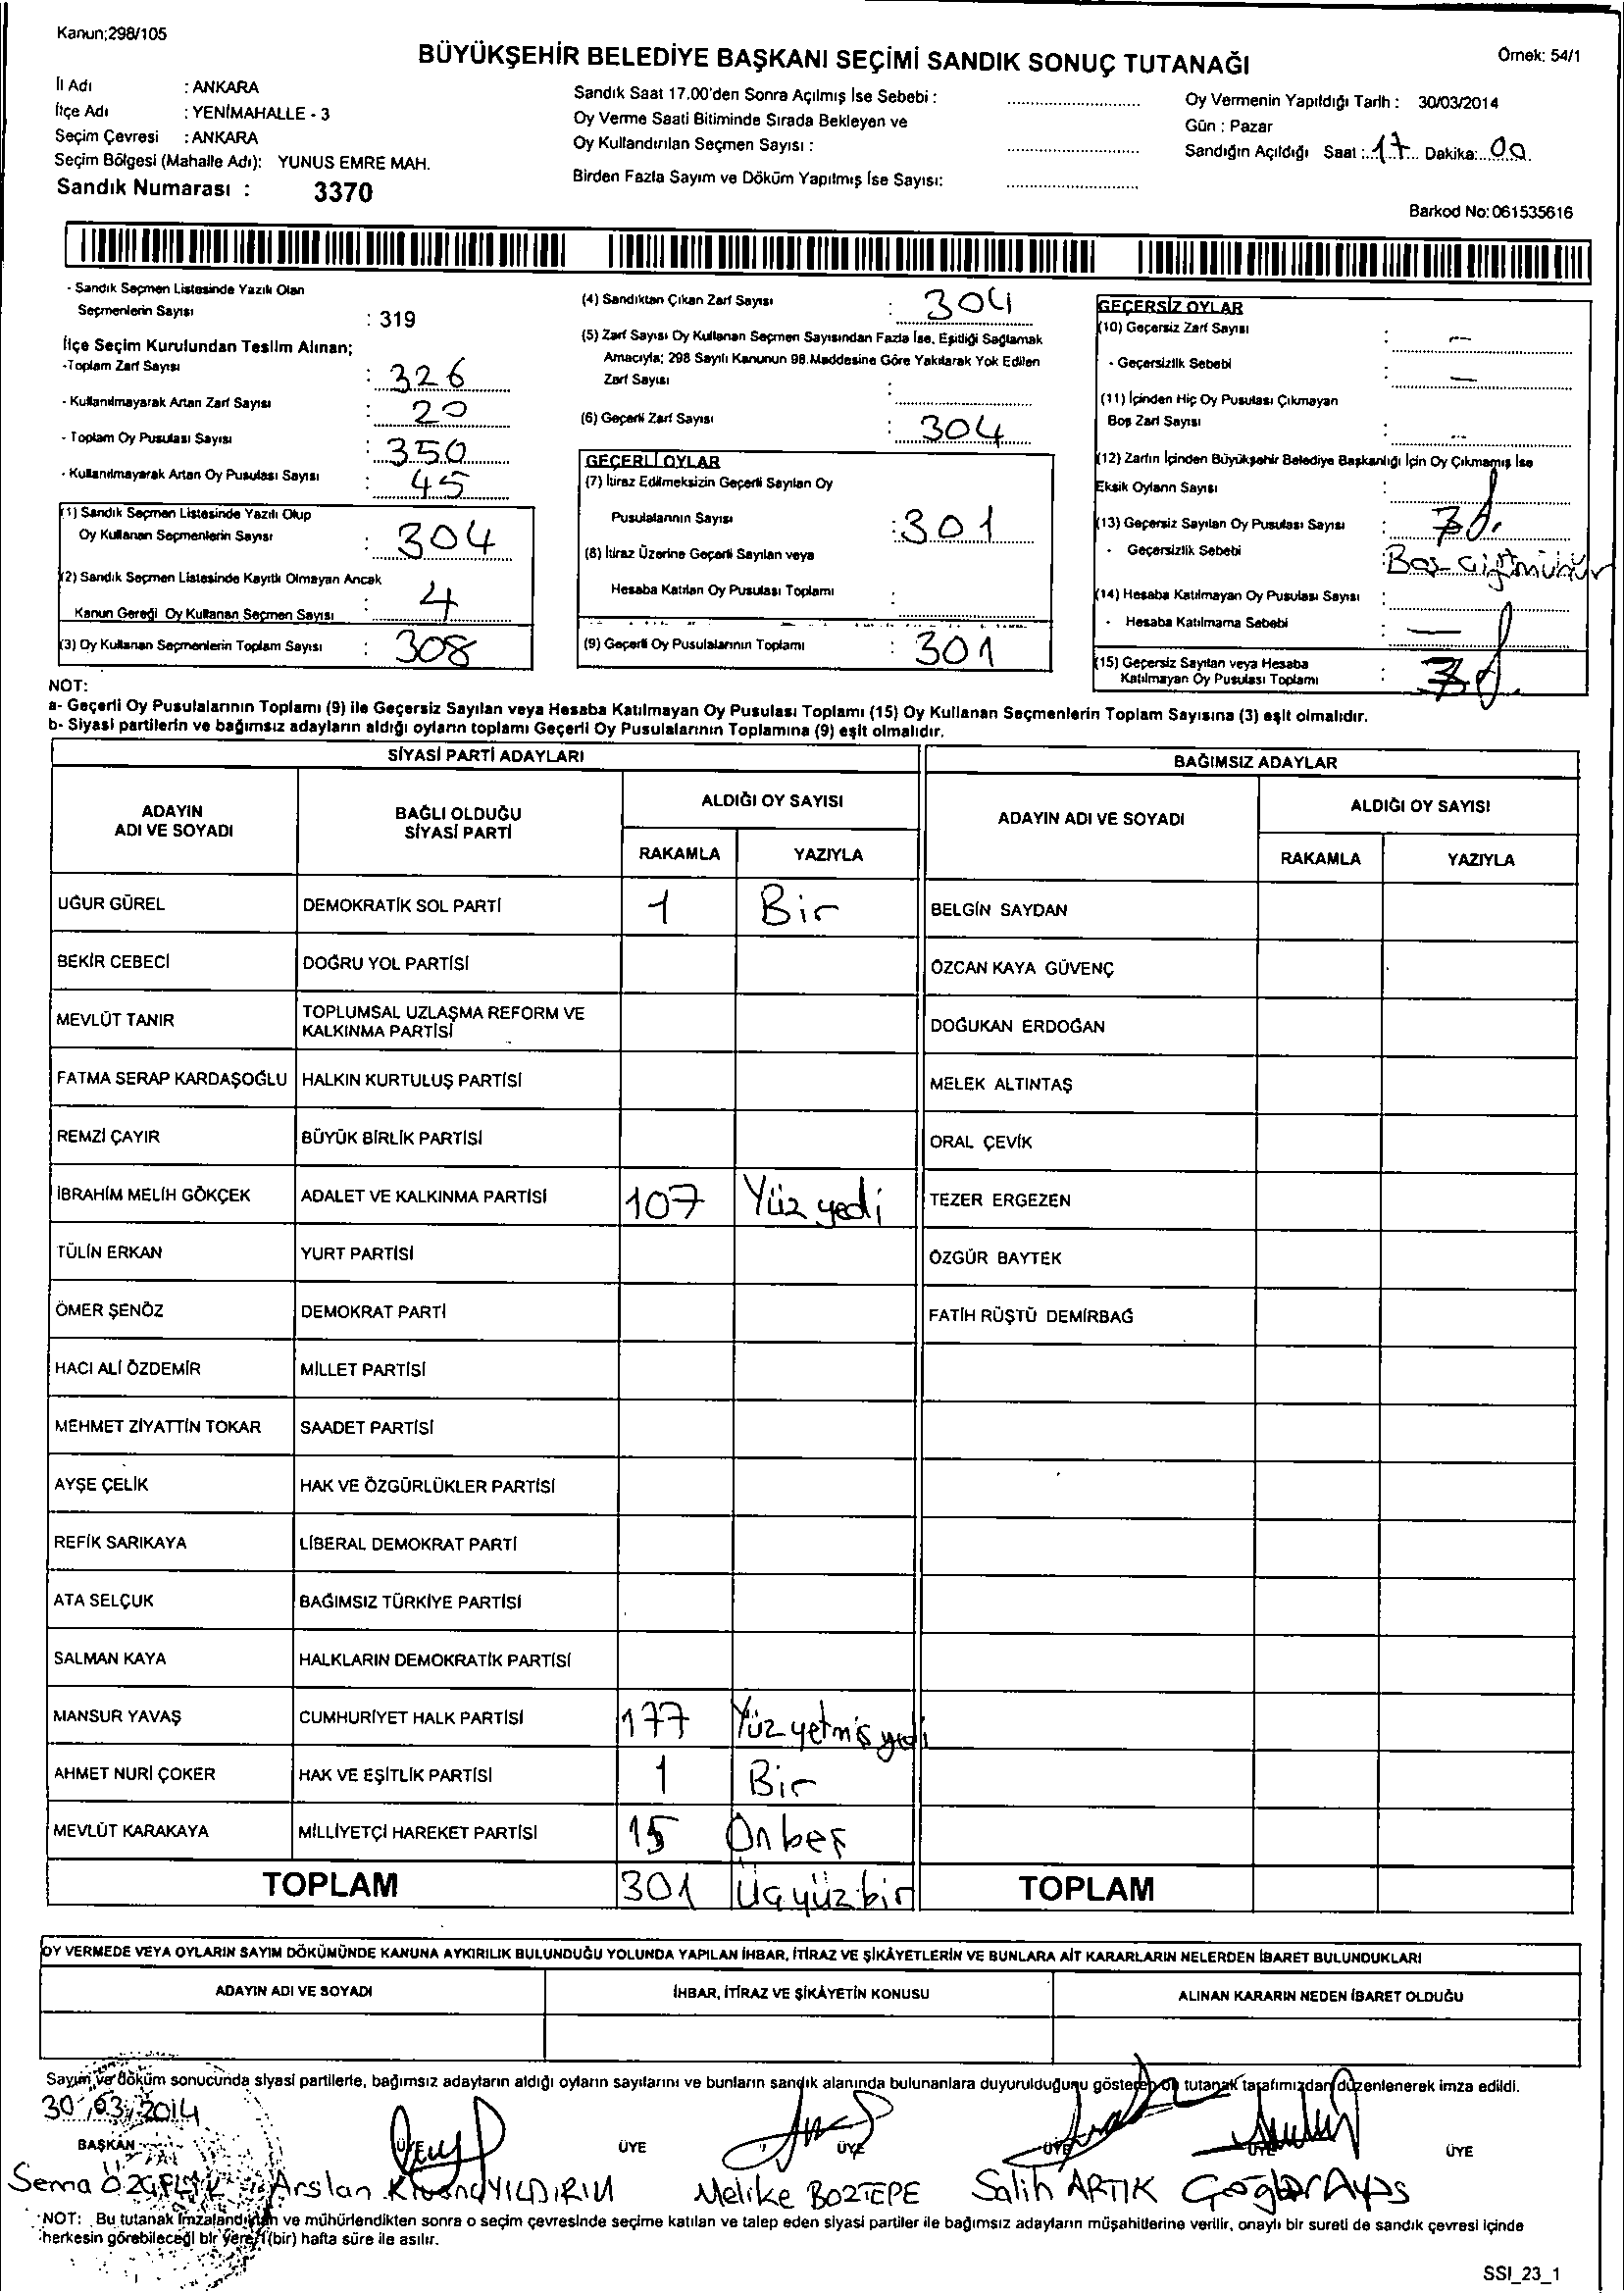 Kanun;298/105
BÜYÜKŞEHİR BELEDİYE BAŞKANI SEÇİMİ SANDIK SONUÇ TUTANAĞI
Örnek: 54/1
İl Adı : ANKARA
İlçe Adı : YENİMAHALLE - 3
Seçim Çevresi : ANKARA
Seçim Bölgesi (Mahalle Adı): YUNUS EMRE MAH.
Sandık Numarası : 3370
Sandık Saat 17.00'den Sonra Açılmış İse Sebebi :
Oy Verme Saati Bitiminde Sırada Bekleyen ve
Oy Kullandırılan Seçmen Sayısı :
Birden Fazla Sayım ve Döküm Yapılmış İse Sayısı:
Oy Vermenin Yapıldığı Tarih : 30/03/2014
Gün : Pazar
Sandığın Açıldığı Saat : 17 Dakika: 00
Barkod No: 061535616
- Sandık Seçmen Listesinde Yazılı Olan
Seçmenlerin Sayısı : 319
İlçe Seçim Kurulundan Teslim Alınan;
-Toplam Zarf Sayısı : 326
- Kullanılmayarak Artan Zarf Sayısı : 20
- Toplam Oy Pusulası Sayısı : 350
- Kullanılmayarak Artan Oy Pusulası Sayısı : 45
(1) Sandık Seçmen Listesinde Yazılı Olup
Oy Kullanan Seçmenlerin Sayısı : 304
(2) Sandık Seçmen Listesinde Kayıtlı Olmayan Ancak
Kanun Gereği Oy Kullanan Seçmen Sayısı : 4
(3) Oy Kullanan Seçmenlerin Toplam Sayısı : 308
(4) Sandıktan Çıkan Zarf Sayısı : 304
(5) Zarf Sayısı Oy Kullanan Seçmen Sayısından Fazla İse, Eşitliği Sağlamak
Amacıyla; 298 Sayılı Kanunun 98.Maddesine Göre Yakılarak Yok Edilen
Zarf Sayısı :
(6) Geçerli Zarf Sayısı : 304
GEÇERLİ OYLAR
(7) İtiraz Edilmeksizin Geçerli Sayılan Oy
Pusulalarının Sayısı : 301
(8) İtiraz Üzerine Geçerli Sayılan veya
Hesaba Katılan Oy Pusulası Toplamı :
(9) Geçerli Oy Pusulalarının Toplamı : 301
GEÇERSİZ OYLAR
(10) Geçersiz Zarf Sayısı : -
- Geçersizlik Sebebi : -
(11) İçinden Hiç Oy Pusulası Çıkmayan
Boş Zarf Sayısı : -
(12) Zarfın İçinden Büyükşehir Belediye Başkanlığı İçin Oy Çıkmamış İse
Eksik Oyların Sayısı :
(13) Geçersiz Sayılan Oy Pusulası Sayısı : 3
- Geçersizlik Sebebi :
(14) Hesaba Katılmayan Oy Pusulası Sayısı :
- Hesaba Katılmama Sebebi : -
(15) Geçersiz Sayılan veya Hesaba
Katılmayan Oy Pusulası Toplamı : 3
NOT:
a- Geçerli Oy Pusulalarının Toplamı (9) ile Geçersiz Sayılan veya Hesaba Katılmayan Oy Pusulası Toplamı (15) Oy Kullanan Seçmenlerin Toplam Sayısına (3) eşit olmalıdır.
b- Siyasi partilerin ve bağımsız adayların aldığı oyların toplamı Geçerli Oy Pusulalarının Toplamına (9) eşit olmalıdır.
SİYASİ PARTİ ADAYLARI BAĞIMSIZ ADAYLAR
ADAYIN ADI VE SOYADI BAĞLI OLDUĞU SİYASİ PARTİ ALDIĞI OY SAYISI ADAYIN ADI VE SOYADI ALDIĞI OY SAYISI
RAKAMLA YAZIYLA RAKAMLA YAZIYLA
UĞUR GÜREL DEMOKRATİK SOL PARTİ 1 Bir BELGİN SAYDAN
BEKİR CEBECİ DOĞRU YOL PARTİSİ ÖZCAN KAYA GÜVENÇ
MEVLÜT TANIR TOPLUMSAL UZLAŞMA REFORM VE KALKINMA PARTİSİ DOĞUKAN ERDOĞAN
FATMA SERAP KARDAŞOĞLU HALKIN KURTULUŞ PARTİSİ MELEK ALTINTAŞ
REMZİ ÇAYIR BÜYÜK BİRLİK PARTİSİ ORAL ÇEVİK
İBRAHİM MELİH GÖKÇEK ADALET VE KALKINMA PARTİSİ 107 Yüz yedi TEZER ERGEZEN
TÜLİN ERKAN YURT PARTİSİ ÖZGÜR BAYTEK
ÖMER ŞENÖZ DEMOKRAT PARTİ FATİH RÜŞTÜ DEMİRBAĞ
HACI ALİ ÖZDEMİR MİLLET PARTİSİ
MEHMET ZİYATTİN TOKAR SAADET PARTİSİ
AYŞE ÇELİK HAK VE ÖZGÜRLÜKLER PARTİSİ
REFİK SARIKAYA LİBERAL DEMOKRAT PARTİ
ATA SELÇUK BAĞIMSIZ TÜRKİYE PARTİSİ
SALMAN KAYA HALKLARIN DEMOKRATİK PARTİSİ
MANSUR YAVAŞ CUMHURİYET HALK PARTİSİ 177 Yüz yetmiş yedi
AHMET NURİ ÇOKER HAK VE EŞİTLİK PARTİSİ 1 Bir
MEVLÜT KARAKAYA MİLLİYETÇİ HAREKET PARTİSİ 15 Onbeş
TOPLAM 301 Üçyüzbir TOPLAM
OY VERMEDE VEYA OYLARIN SAYIM DÖKÜMÜNDE KANUNA AYKIRILIK BULUNDUĞU YOLUNDA YAPILAN İHBAR, İTİRAZ VE ŞİKÂYETLERİN VE BUNLARA AİT KARARLARIN NELERDEN İBARET BULUNDUKLARI
ADAYIN ADI VE SOYADI İHBAR, İTİRAZ VE ŞİKÂYETİN KONUSU ALINAN KARARIN NEDEN İBARET OLDUĞU
Sayım ve döküm sonucunda siyasi partilerle, bağımsız adayların aldığı oyların sayılarını ve bunların sandık alanında bulunanlara duyurulduğunu gösteren bu tutanak tarafımızdan düzenlenerek imza edildi.
30/03/2014
BAŞKAN ÜYE ÜYE ÜYE ÜYE ÜYE ÜYE
Sema Arslan YILDIRIM Melike BOZTEPE Salih ARTIK
NOT: Bu tutanak imzalandıktan ve mühürlendikten sonra o seçim çevresinde seçime katılan ve talep eden siyasi partiler ile bağımsız adayların müşahitlerine verilir, onaylı bir sureti de sandık çevresi içinde
herkesin görebileceği bir yere 1(bir) hafta süre ile asılır.
SSI_23_1